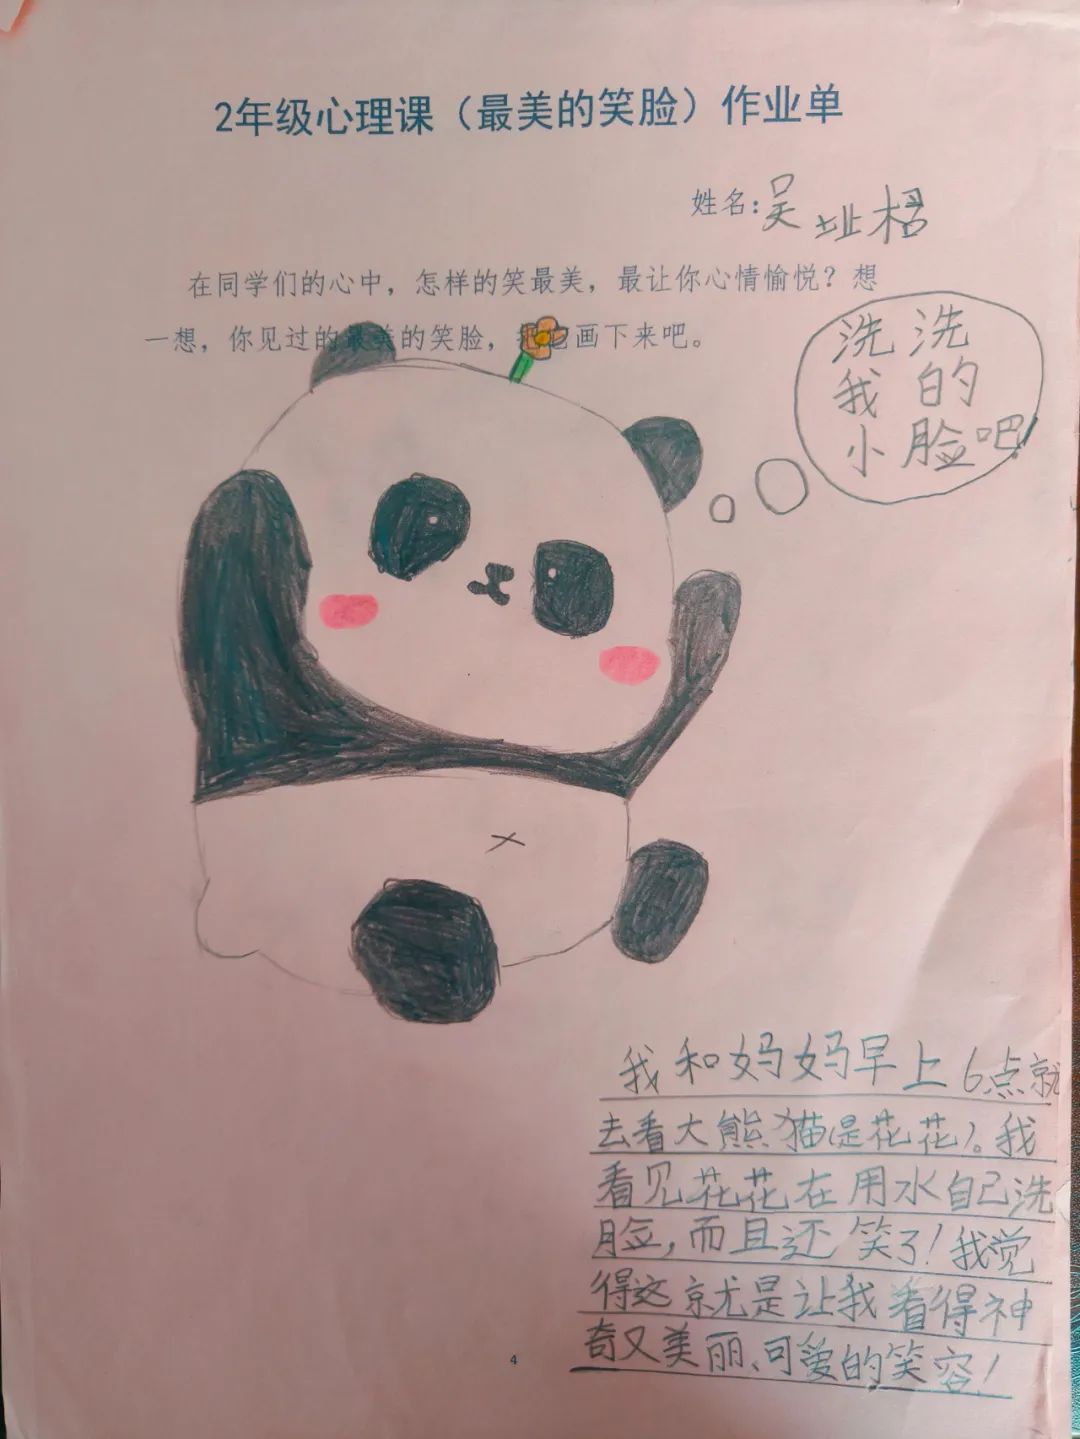 2年级心理课（最美的笑脸）作业单
姓名：吴
在同学们的心中，怎样的笑最美，最让你心情愉悦？想
一想，你见过的最美的笑脸，把它画下来吧。
洗洗
我的
小脸吧！
我和妈妈早上6点就
去看大熊猫（是花花）。我
看见花花在用水自己洗
脸，而且还笑了！我觉
得这就是让我看得神
奇又美丽、可爱的笑容！
4